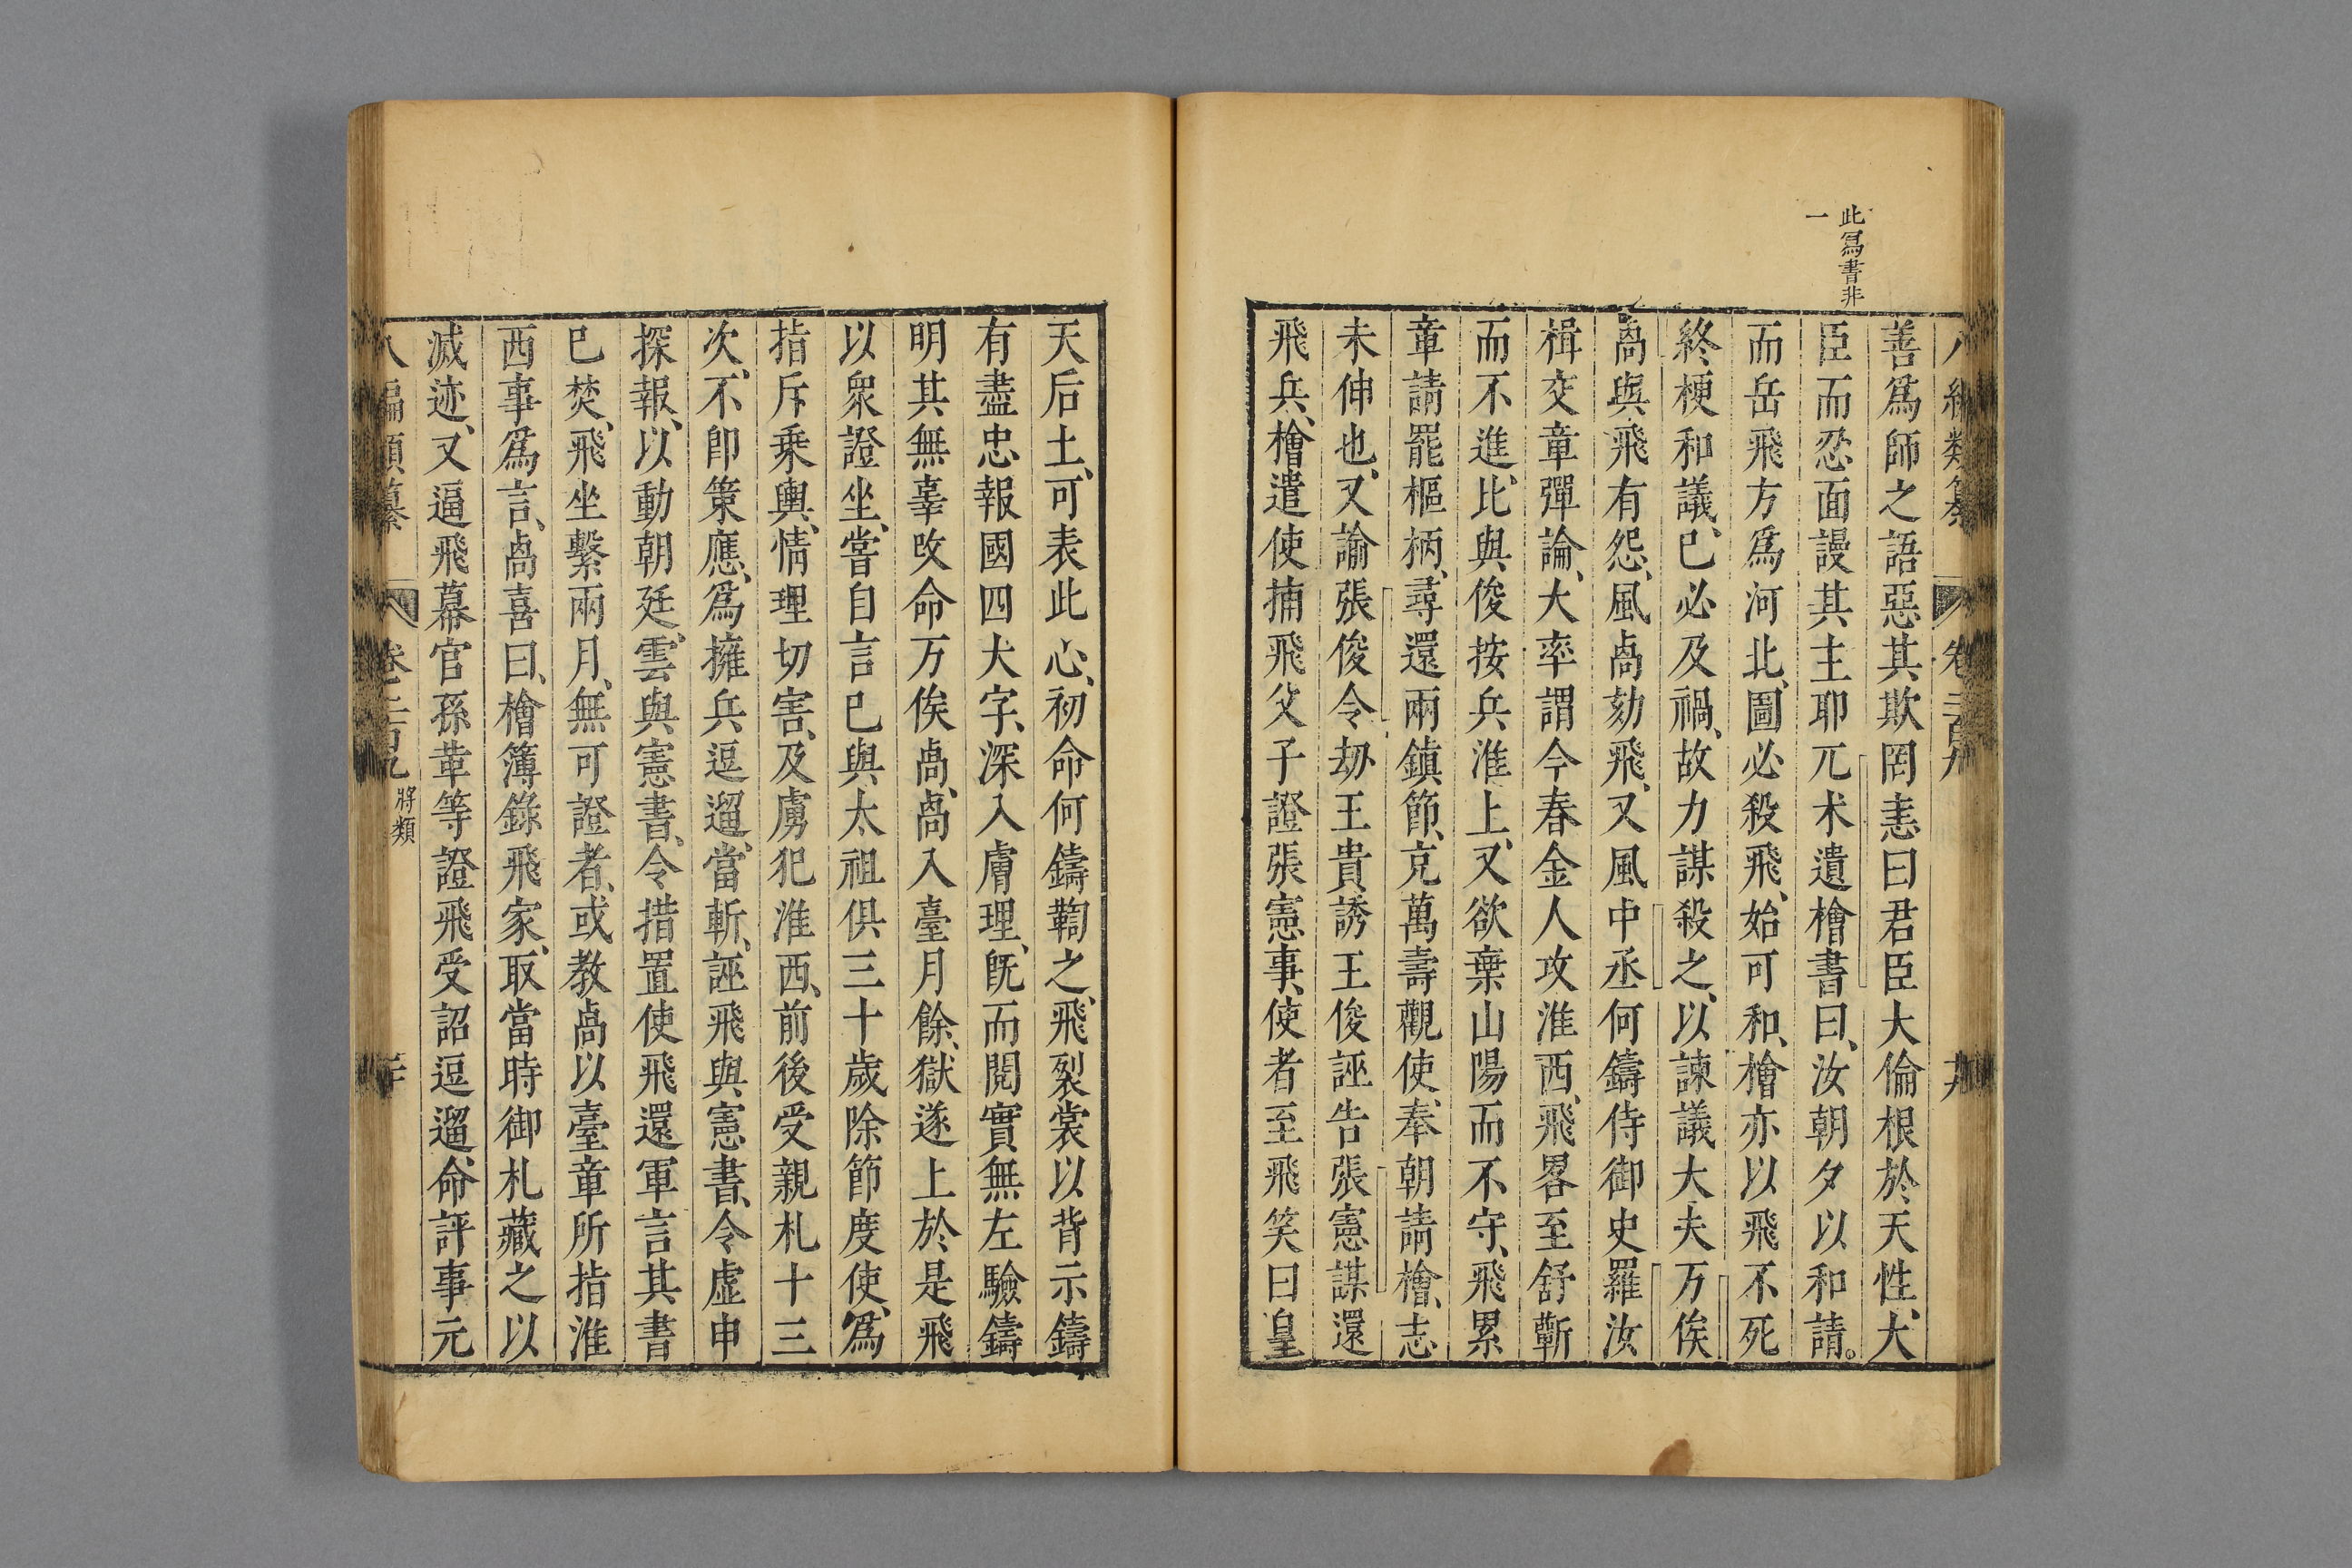 此寫書非
一
善爲師之語惡其欺罔恚曰君臣大倫根於天性、大
臣而忍面謾其主耶兀术遺檜書曰、汝朝夕以和請。
而岳飛方爲河北、圖必殺飛、始可和、檜亦以飛不死
終梗和議、巳必及禍、故力謀殺之、以諫議大夫万俟
卨與飛有怨、風卨劾飛、又風中丞何鑄侍御史羅汝
楫交章彈論、大率謂今春金人攻淮西、飛畧至舒蘄
而不進、比與俊按兵淮上、又欲棄山陽而不守、飛累
章請罷樞柄、尋還兩鎮節、充萬壽觀使、奉朝請檜、志
未伸也、又諭張俊令劫王貴誘王俊誣告張憲謀還
飛兵、檜遣使捕飛父子證張憲事、使者至飛笑曰皇
天后土、可表此心、初命何鑄鞫之、飛裂裳以背示鑄
有盡忠報國四大字、深入膚理、旣而閱實無左驗鑄
明其無辜改命万俟卨、卨入臺月餘、獄遂上於是飛
以衆證坐、嘗自言巳與太祖俱三十歲除節度使、爲
指斥乗輿、情理切害、及虜犯淮西、前後受親札十三
次、不卽策應、爲擁兵逗遛、當斬、誣飛與憲書、令虛申
探報、以動朝廷、雲與憲書、令措置使飛還軍言其書
巳焚、飛坐繫兩月、無可證者、或教卨以臺章所指淮
西事爲言、卨喜曰、檜簿錄飛家、取當時御札藏之以
滅迹、又逼飛幕官孫革等證飛受詔逗遛、命評事元
八編類纂 卷二百九 將類 二十